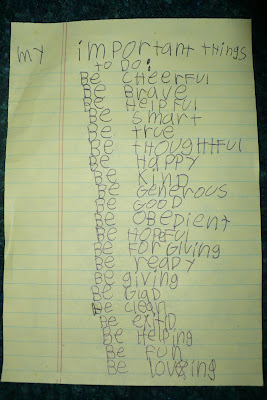 my important things
to Do:
Be CHeerFul
Be Brave
Be HelpFul
Be smart
Be true
Be tHougHtFul
Be Happy
Be KinD
Be Generous
Be GooD
Be OBeDient
Be HopeFul
Be ForGiving
Be reaDy
Be giving
Be GlaD
Be clean
Be Helping
Be Fun
Be loveing